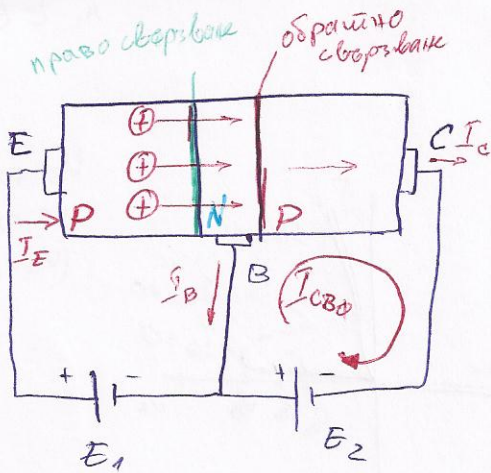 право свързване
обратно
свързване
E
C
I_C
P
N
P
I_E
I_B
B
I_CB0
+ -
+ -
E₁
E₂